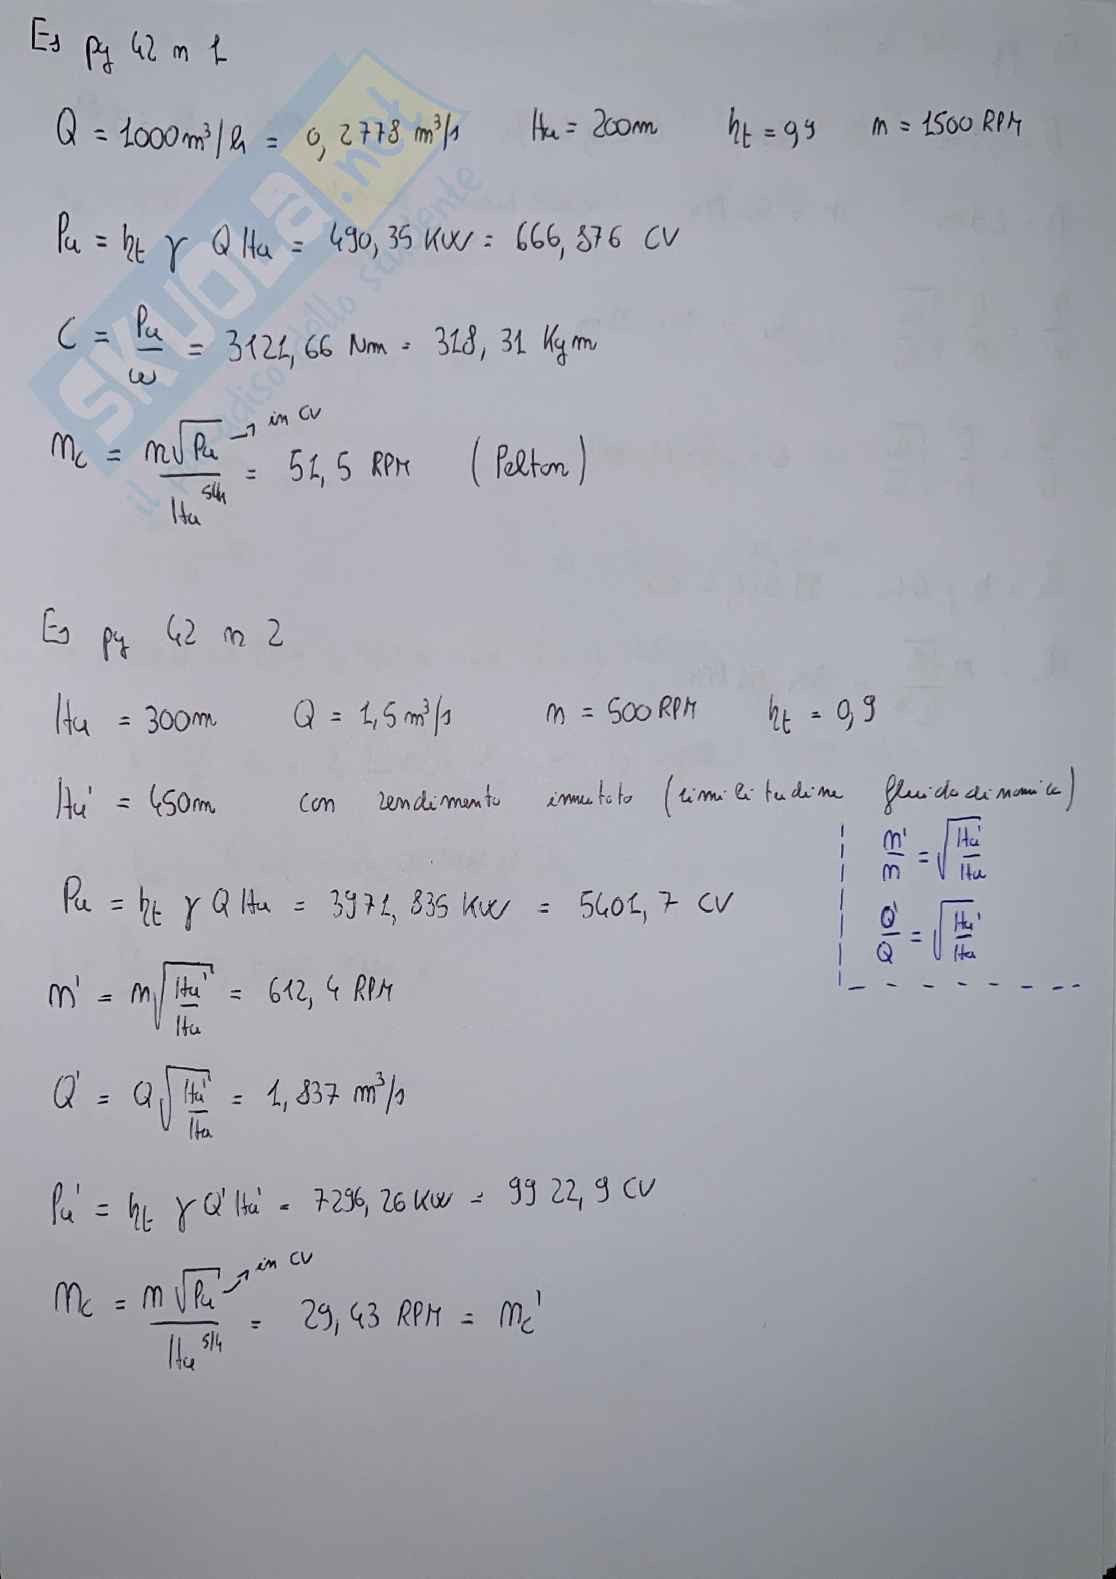 Es pg 42 n 1
Q = 1000 m³/h = 0,2778 m³/s Hu = 200m ηt = 0,9 n = 1500 RPM
Pu = ηt γ Q Hu = 490,35 KW = 666,876 CV
C = Pu/ω = 3121,66 Nm = 318,31 Kgm
nc = n√Pu / Hu^5/4 = 51,5 RPM (Pelton)
→ in CV
Es pg 42 n 2
Hu = 300m Q = 1,5 m³/s n = 500 RPM ηt = 0,9
Hu' = 450m con rendimento immutato (similitudine fluidodinamica)
n'/n = √(Hu'/Hu)
Q'/Q = √(Hu'/Hu)
Pu = ηt γ Q Hu = 3971,835 KW = 5401,7 CV
n' = n√(Hu'/Hu) = 612,4 RPM
Q' = Q√(Hu'/Hu) = 1,837 m³/s
Pu' = ηt γ Q' Hu' = 7296,26 KW = 9922,9 CV
nc = n√Pu / Hu^5/4 = 29,43 RPM = nc'
→ in CV
SKUOLA.net
il paradiso dello studente